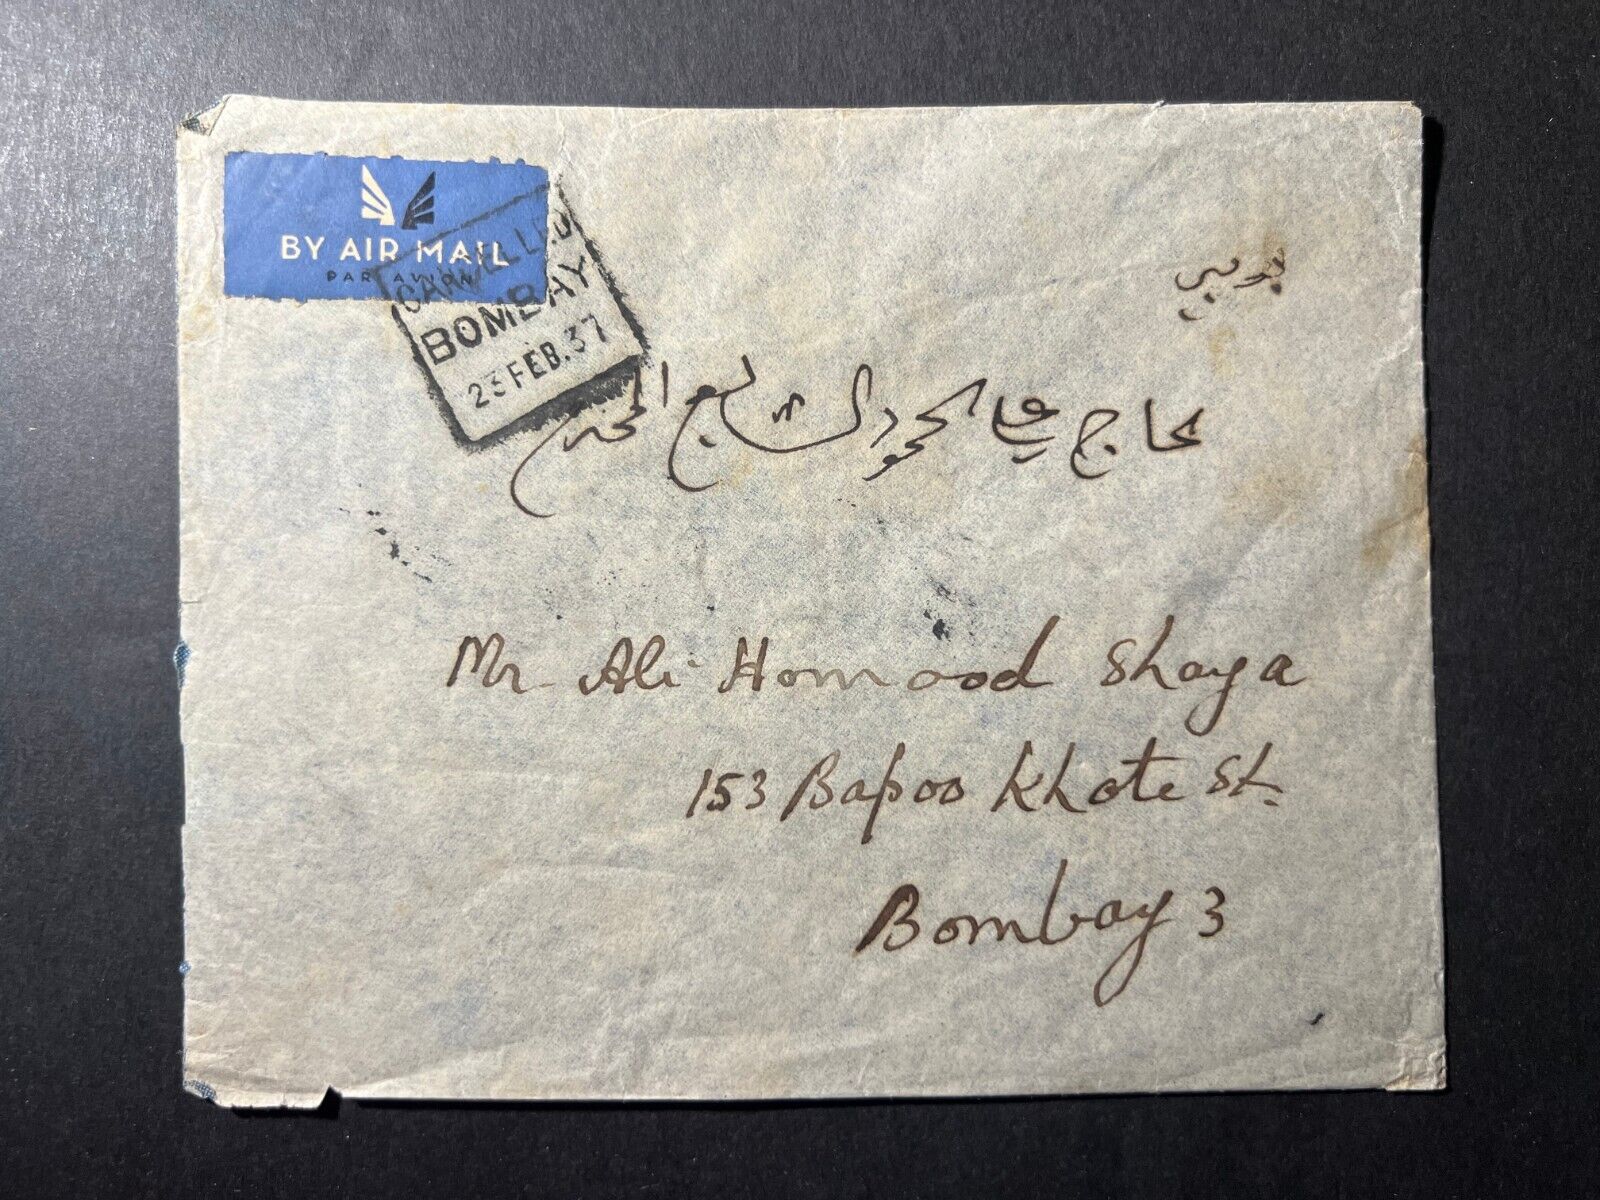 BY AIR MAIL
PAR AVION
CANCELLED
BOMBAY
23 FEB. 37
بومبي
حاج علي الحمود الشايع المحترم
Mr. Ali Homood Shaya
153 Bapoo Khote St.
Bombay 3